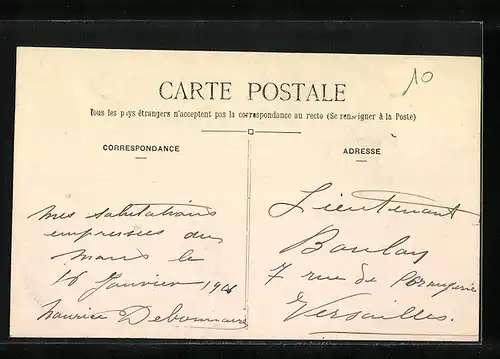 10
CARTE POSTALE
Tous les pays étrangers n'acceptent pas la correspondance au recto (Se renseigner à la Poste)
CORRESPONDANCE
ADRESSE
mes salutations
empressées du
Mans le
16 Janvier
Maurice Debonnaire
Lieutenant
Boulay
7 rue de l'Orangerie
Versailles.